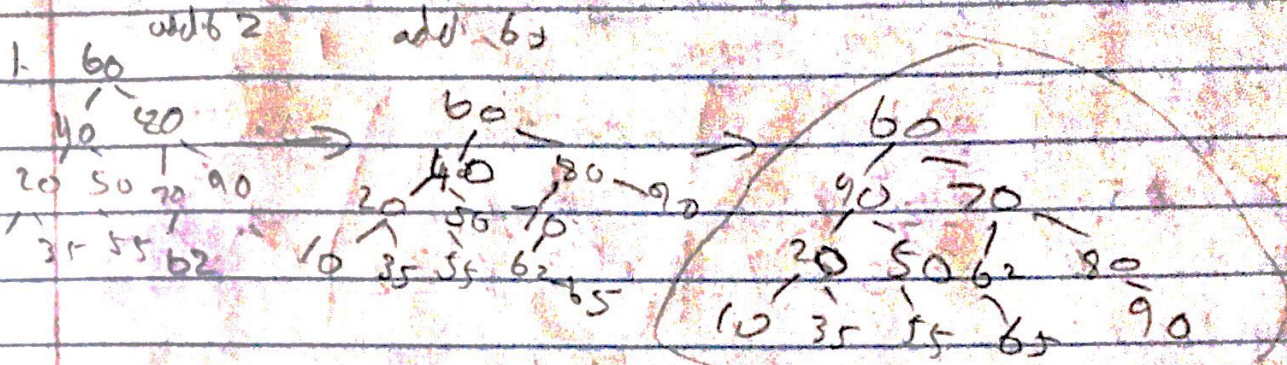 add 62
1. 60
40 80
20 50 70 90
35 55 62
add 65
60
40 80
20 50 70 90
10 35 55 62 65
60
40 70
20 50 62 80
10 35 55 65 90